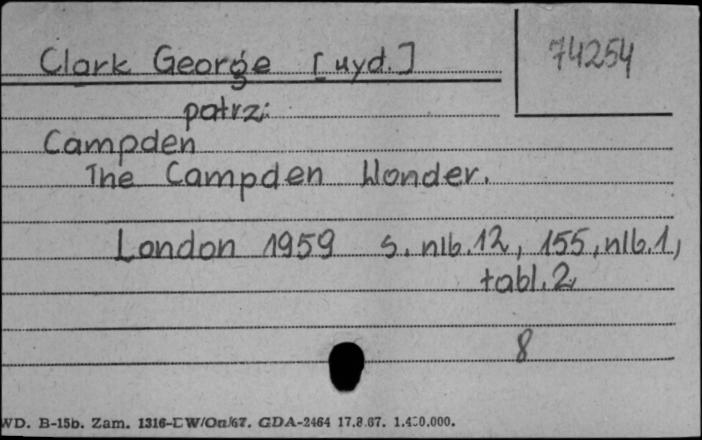 Clark George [wyd.]
74254
patrz:
Campden
The Campden Wonder.
London 1959 s. nlb. 12, 155, nlb. 1,
tabl. 2,
8
WD. B-15b. Zam. 1316-DW/Oa/67. GDA-2464 17.8.67.